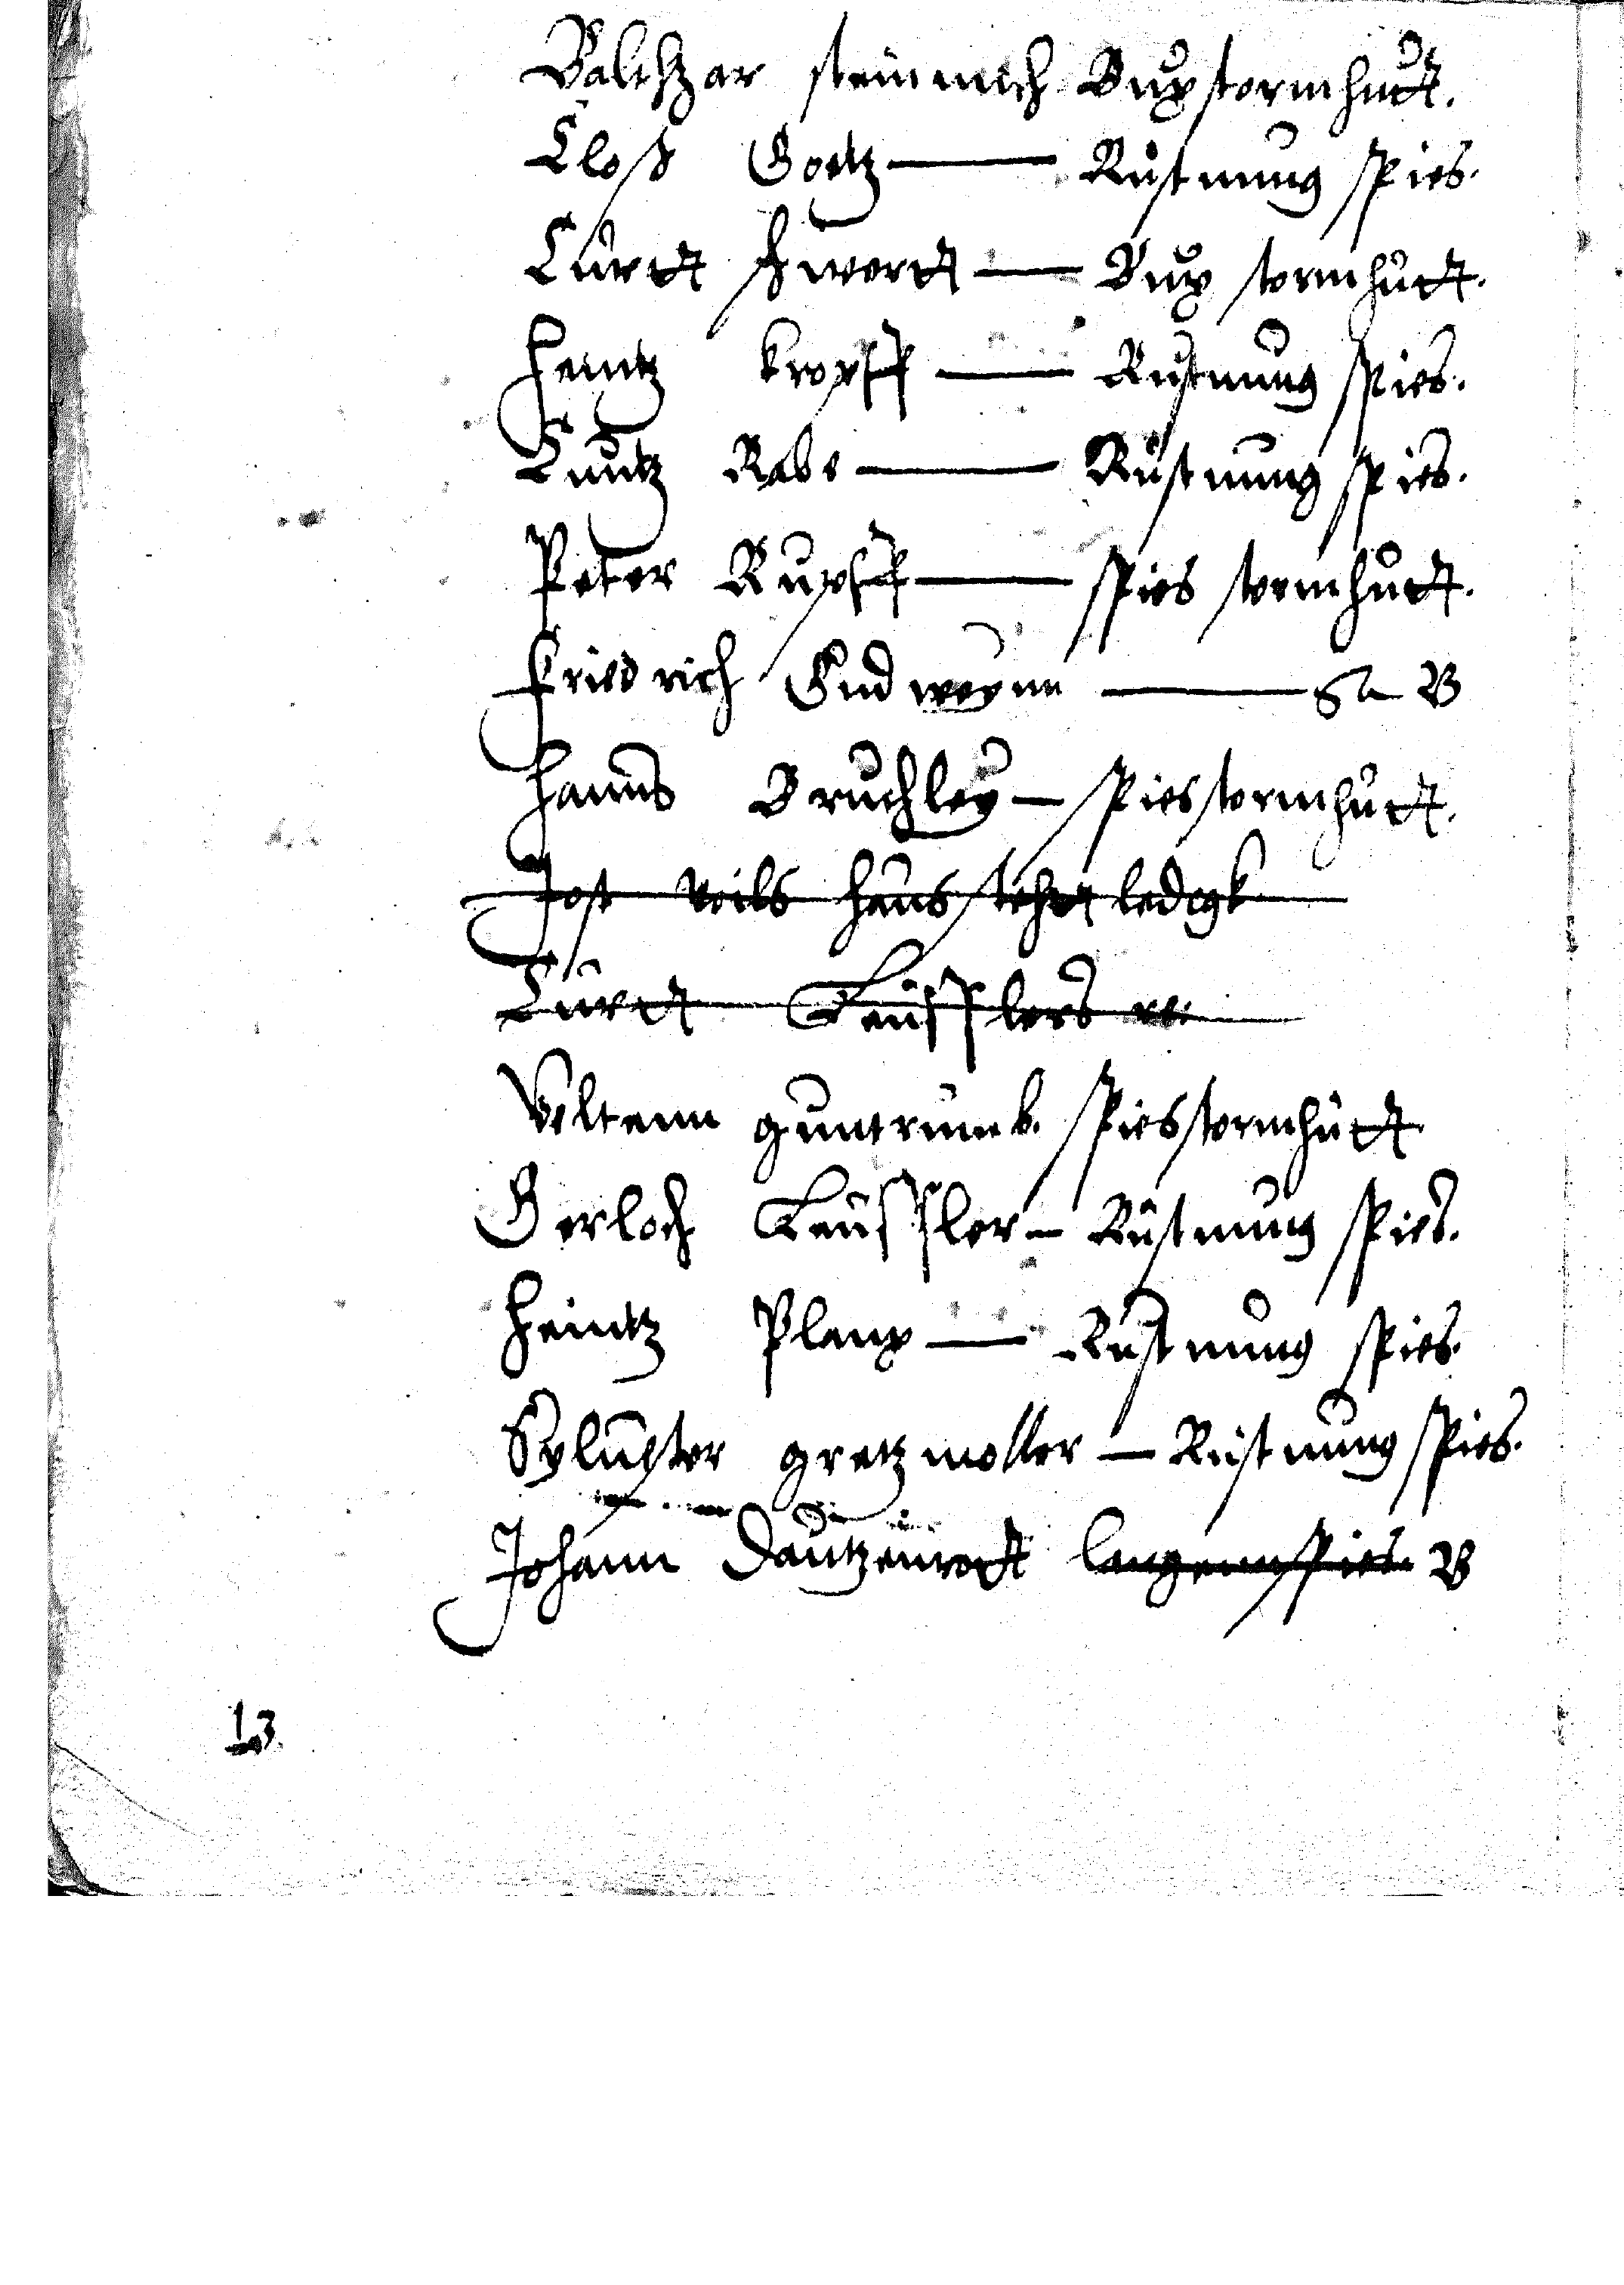 Balthzar steinmeh Buxstormhudt.
Closs Goetz — Rustnung spies.
Curdt schwerdt — Bux stormhudt.
Heintz kropff — Rustnung spies.
Cuntz Rabe — Rustnung spies.
Peter Rupff — spies stormhudt.
Friedrich Gudweynn — B
Hanns Bruchley — spiesstormhudt.
Jost veils haus stehet ledigk
Curdt Teufflers
Veltenn guntrumb. spiesstormhudt
Gerloch Teuffler — Rustnung spies.
Heintz Planx — Rustnung spies.
Syluester gretzmoller — Rustnung spies.
Johann Dautzenrodt langenspies B
13